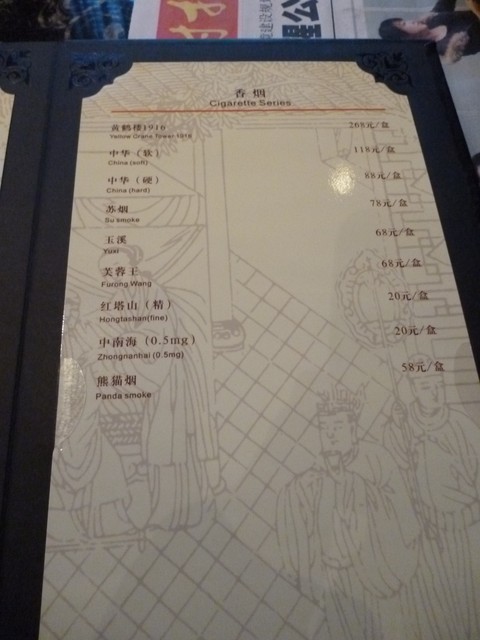 香烟
Cigarette Series
黄鹤楼1916 268元/盒
Yellow Crane Tower 1916
中华（软） 118元/盒
China (soft)
中华（硬） 88元/盒
China (hard)
苏烟 78元/盒
Su smoke
玉溪 68元/盒
Yuxi
芙蓉王 68元/盒
Furong Wang
红塔山（精） 20元/盒
Hongtashan(fine)
中南海（0.5mg） 20元/盒
Zhongnanhai (0.5mg)
熊猫烟 58元/盒
Panda smoke